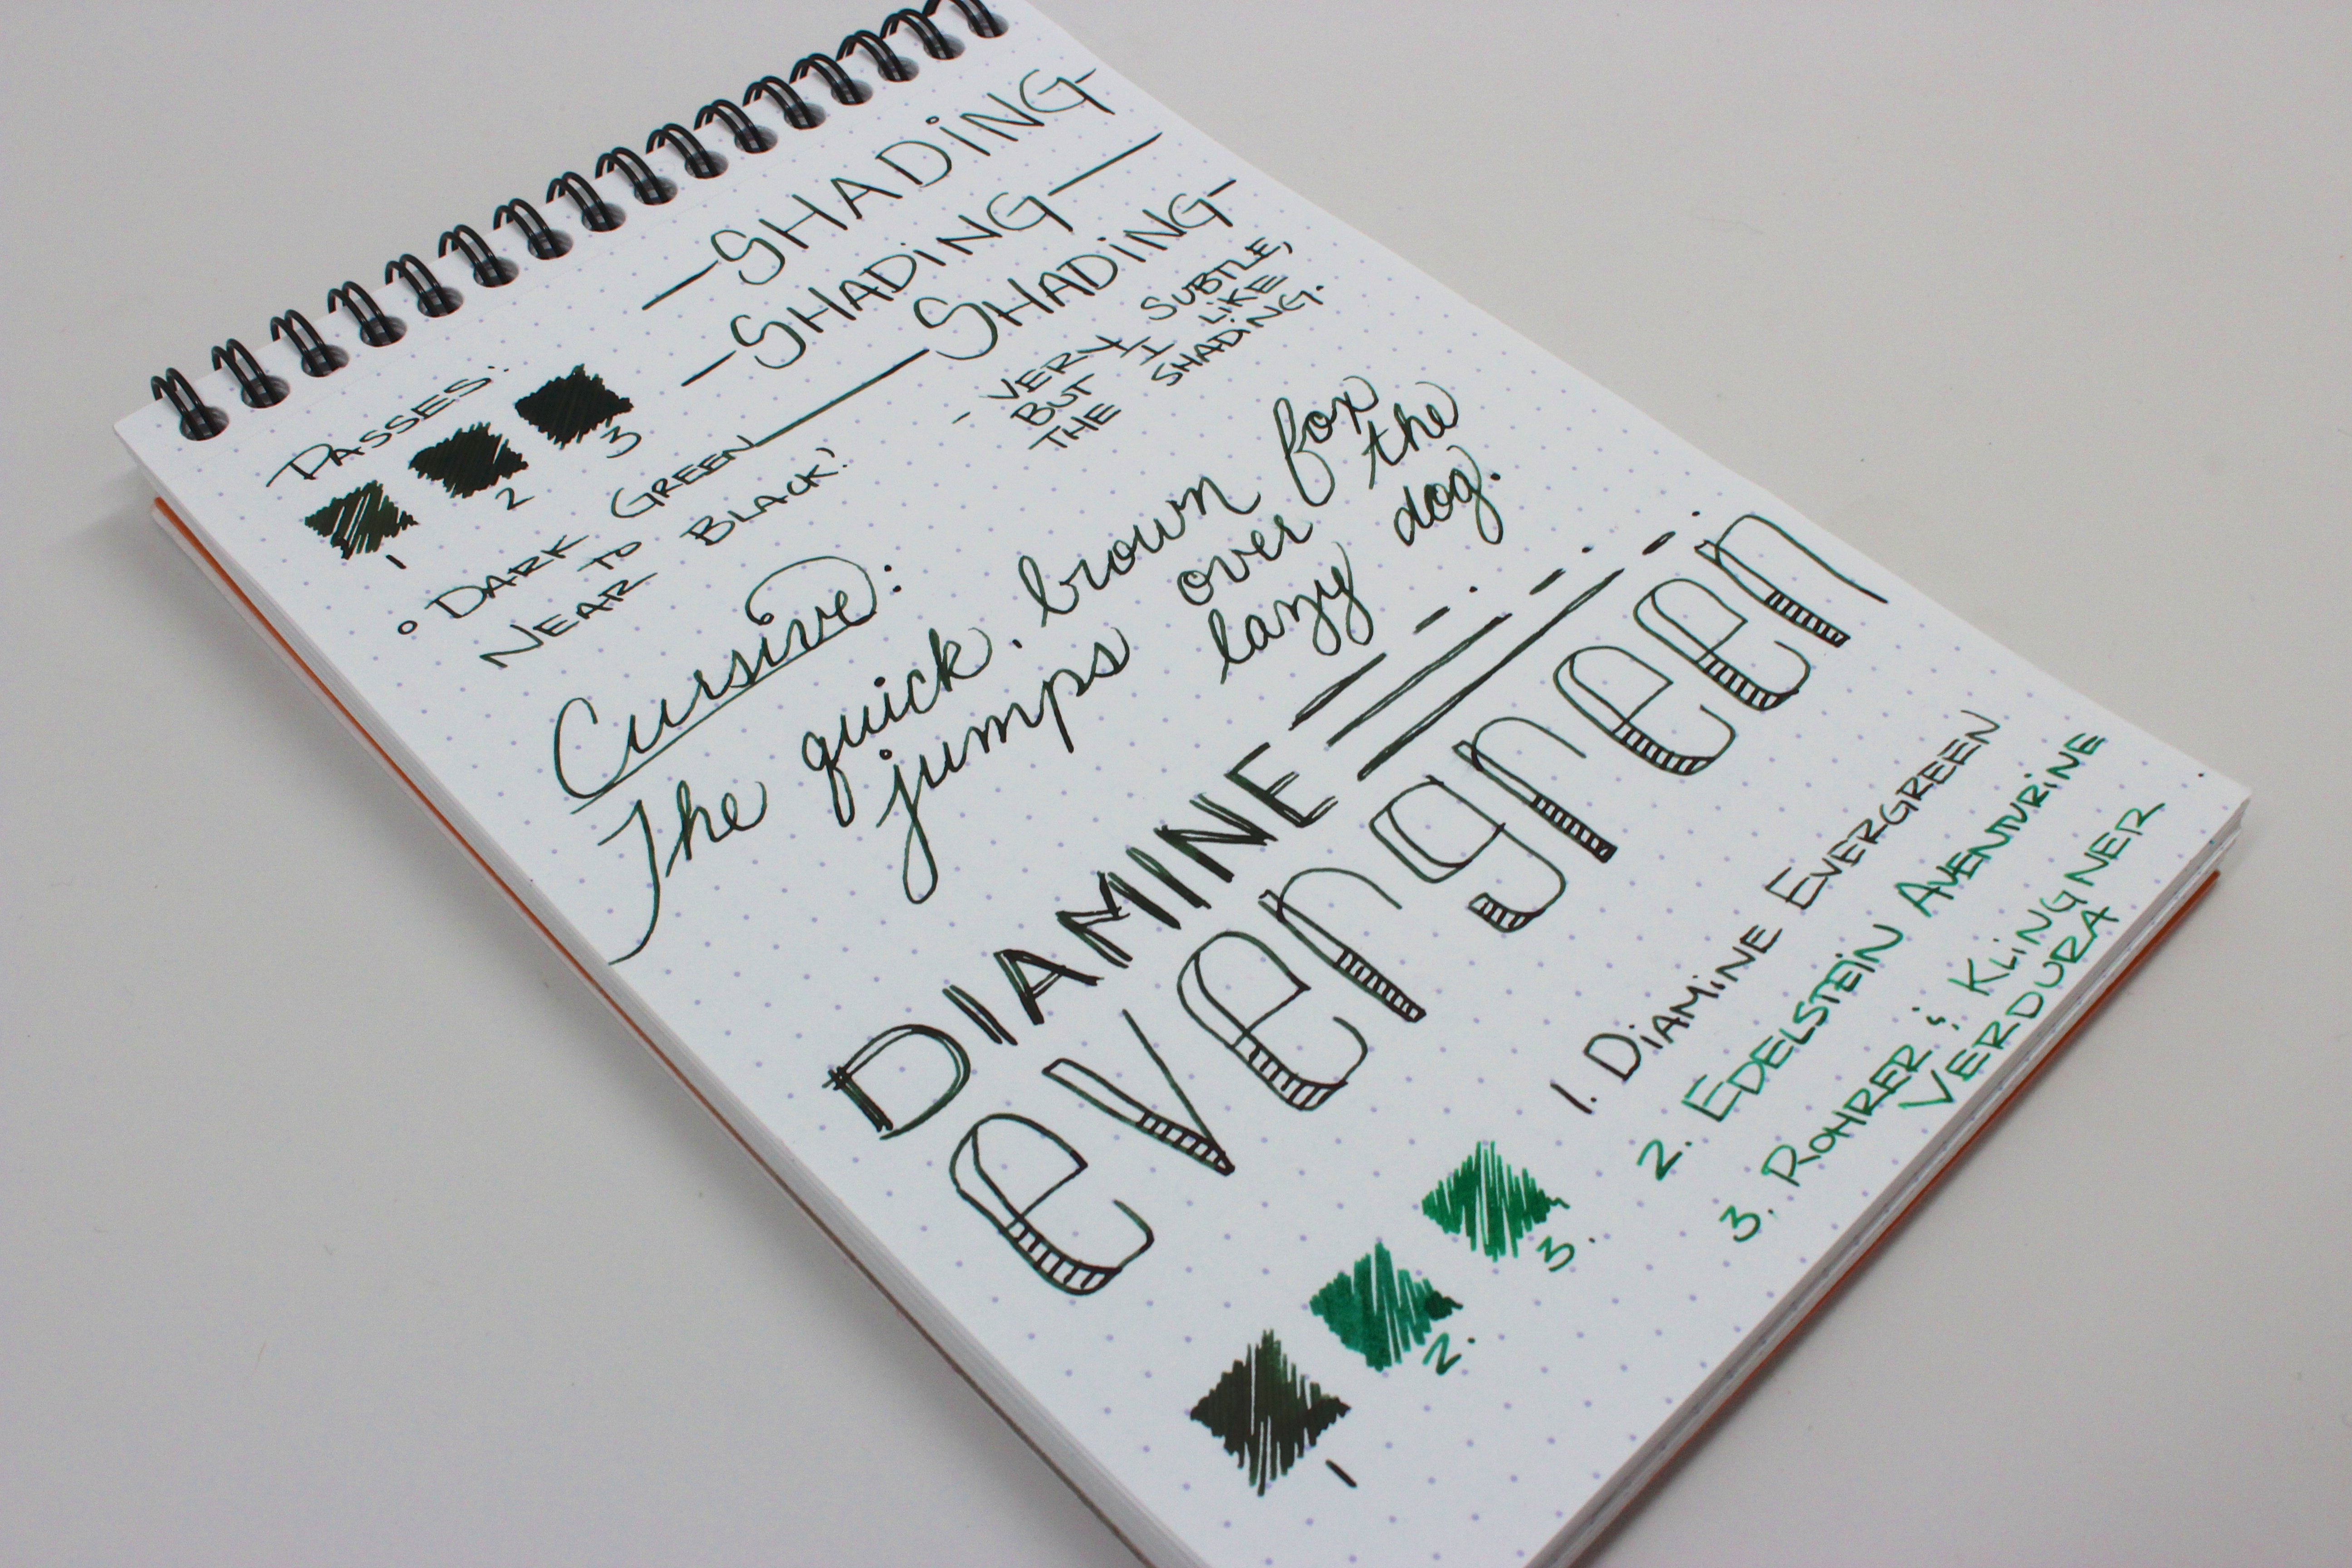 —SHADiNG—
—SHADiNG—
—SHADiNG—
- VERY SUBTLE,
BUT I LiKE
THE SHADiNG.
PASSES:
1 2 3
° DARK GREEN
TO
NEAR BLACK!
Cursive:
The quick brown fox
jumps over the
lazy dog.
DIAMINE
evergreen
1. DiAMiNE EVERGREEN
2. EDELSTEiN AVENTURiNE
3. ROHRER & KLiNGNER
VERDURA
3.
2.
1